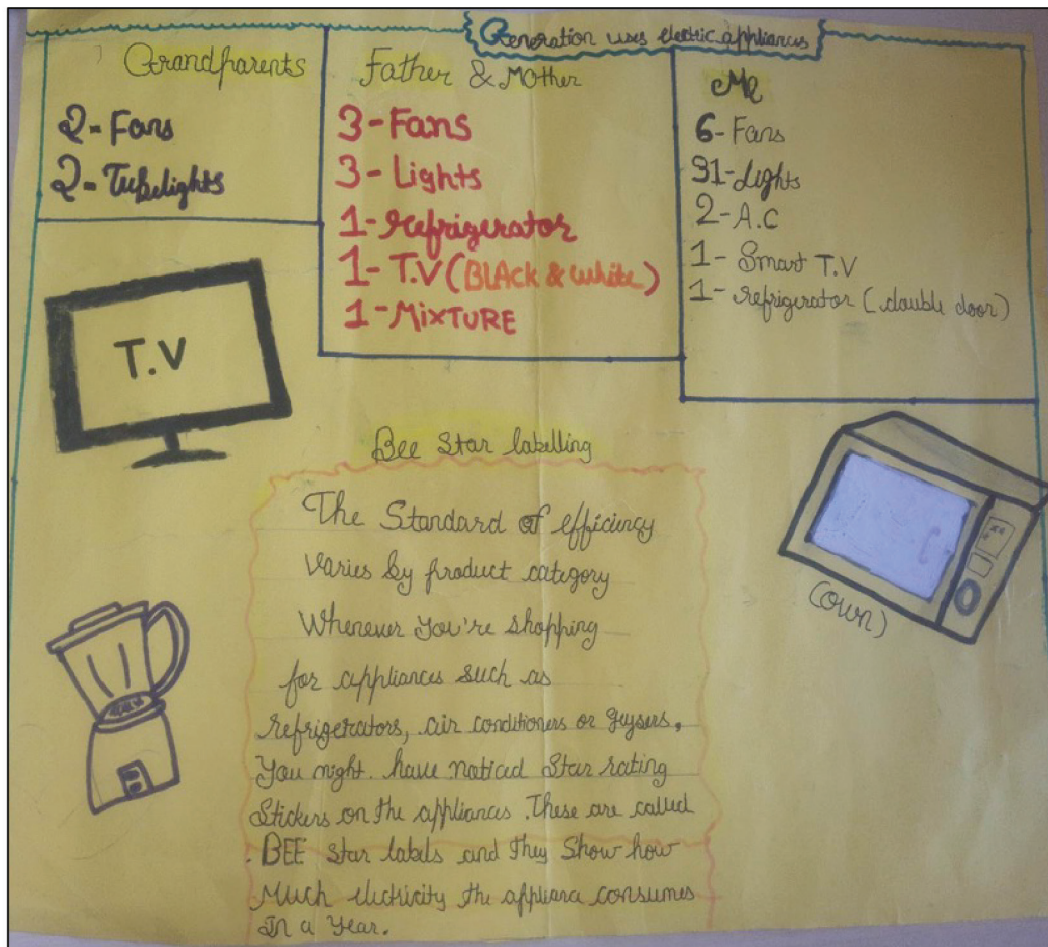 Generation uses electric appliances
Grandparents
2- Fans
2- Tubelights
Father & Mother
3- Fans
3- Lights
1- refrigerator
1- T.V (BLAck & white)
1- MixTURE
Me
6- Fans
31- Lights
2- A.C
1- Smart T.V
1- refrigerator (double door)
T.V
Bee Star labelling
The Standard of efficiency
Varies by product category
Whenever You're shopping
for appliances such as
refrigerators, air conditioners or geysers,
You might have noticed Star rating
Stickers on the appliances. These are called
BEE Star labels and they Show how
Much electricity the appliance consumes
In a Year.
(own)